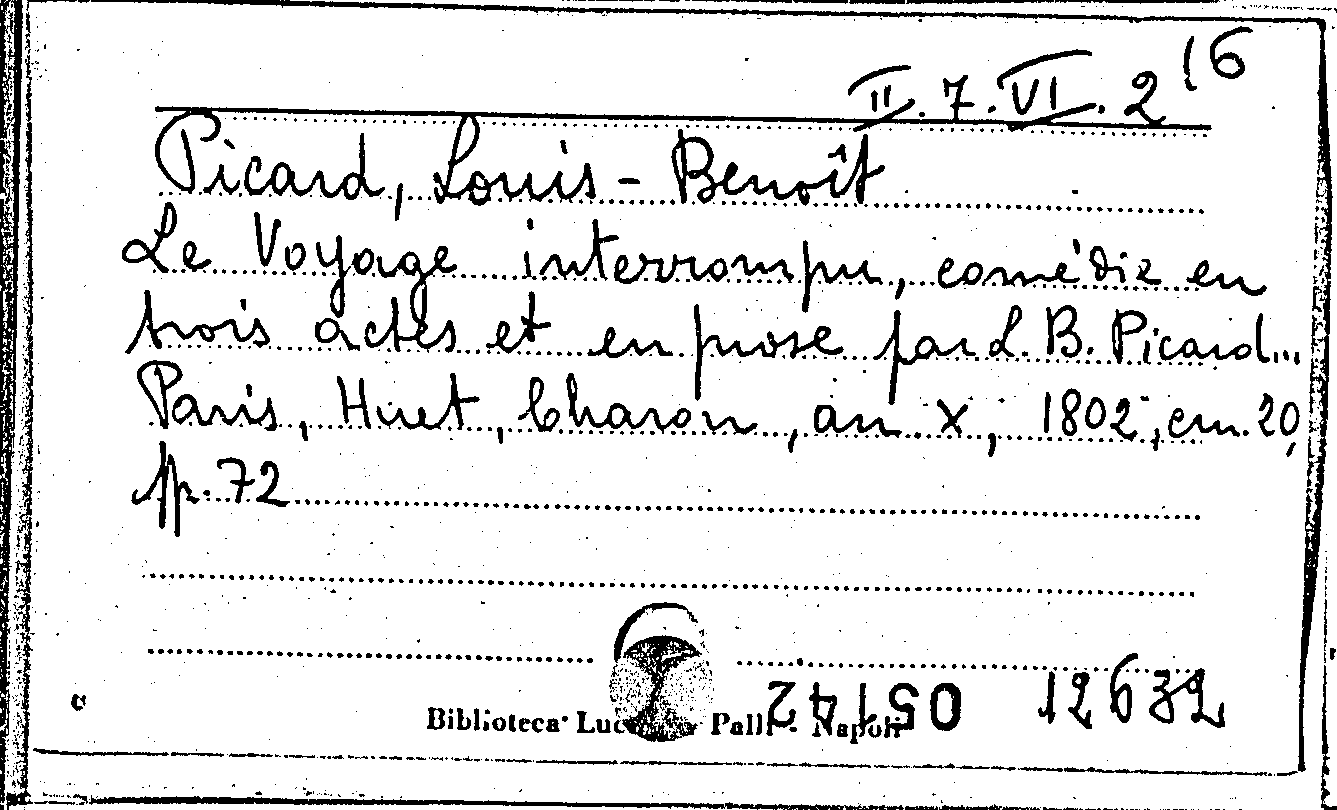 II. 7. VI. 2 16
Picard, Louis-Benoît
Le Voyage interrompu, comédie en
trois actes et en prose par L. B. Picard...
Paris, Huet, Charon, an X, 1802, cm. 20,
pp. 72
Biblioteca Palli - Napoli
05142 12632